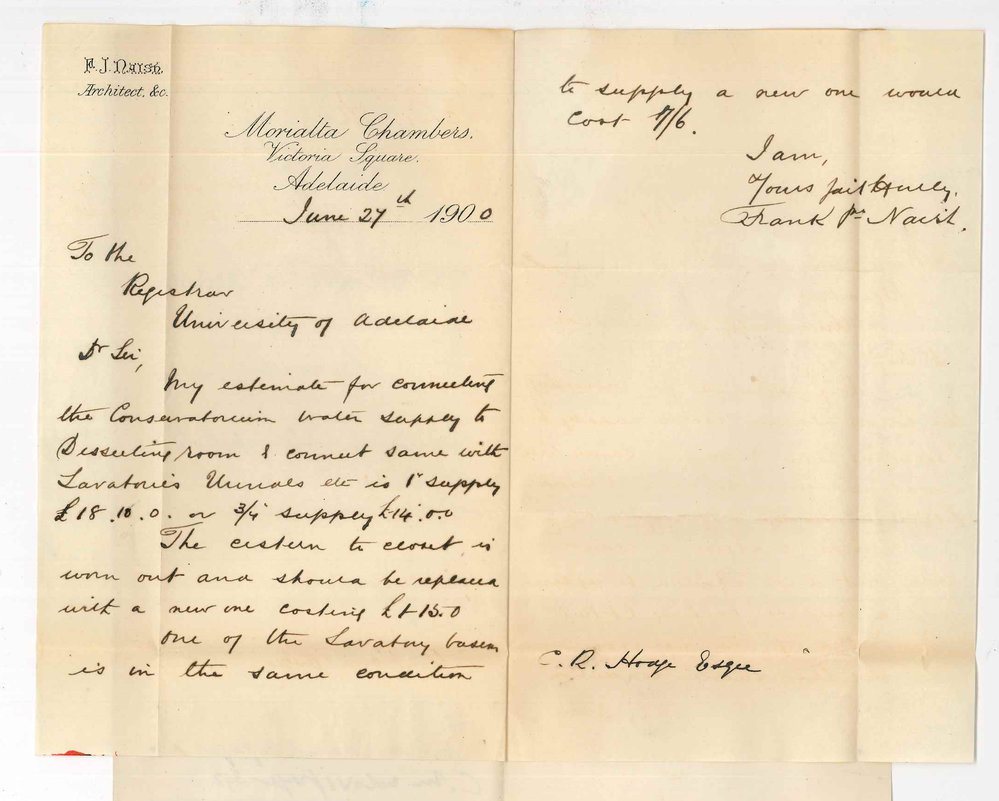 F. J. Naish.
Architect, &c.
Morialta Chambers.
Victoria Square.
Adelaide
June 27th 1900
To the
Registrar
University of Adelaide
Dr Sir,
My estimate for connecting
the Conservatorium water supply to
Dissecting room & connect same with
Lavatories Urinals etc is 1" supply
£18.10.0. or 3/4" supply £14.0.0
The cistern to closet is
worn out and should be replaced
with a new one costing
One of the Lavatory basins
is in the same condition
to supply a new one would
cost 17/6.
I am,
Yours faithfully,
Frank Jno Naish.
C. R. Hodge Esqre